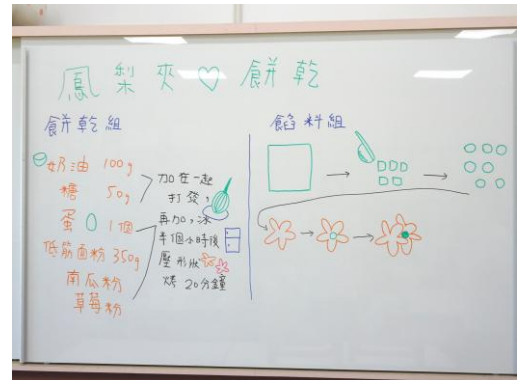 鳳梨夾♡餅乾
餅乾組
奶油 100g
糖 50g
蛋 1個
低筋面粉 350g
南瓜粉
草莓粉
加在一起
打發,
再加,冰
半個小時後
壓形狀
烤 20分鐘
餡料組